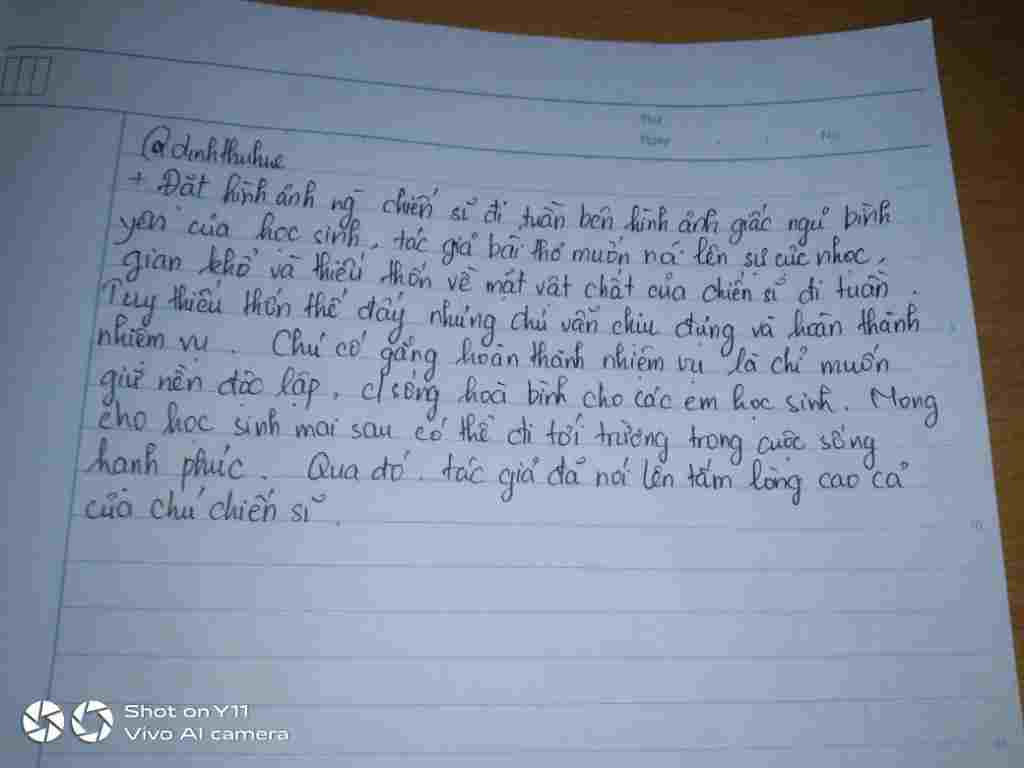 Thứ
Ngày . . No
@dinhthuhue
+ Đặt hình ảnh ng chiến sĩ đi tuần bên hình ảnh giấc ngủ bình
yên của học sinh, tác giả bài thơ muốn nói lên sự cực nhọc,
gian khổ và thiếu thốn về mặt vật chất của chiến sĩ đi tuần.
Tuy thiếu thốn thế đấy nhưng chú vẫn chịu đựng và hoàn thành
nhiệm vụ. Chú cố gắng hoàn thành nhiệm vụ là chỉ muốn
giữ nền độc lập, c/sống hoà bình cho các em học sinh. Mong
cho học sinh mai sau có thể đi tới trường trong cuộc sống
hạnh phúc. Qua đó, tác giả đã nói lên tấm lòng cao cả
của chú chiến sĩ.
Shot on Y11
Vivo AI camera